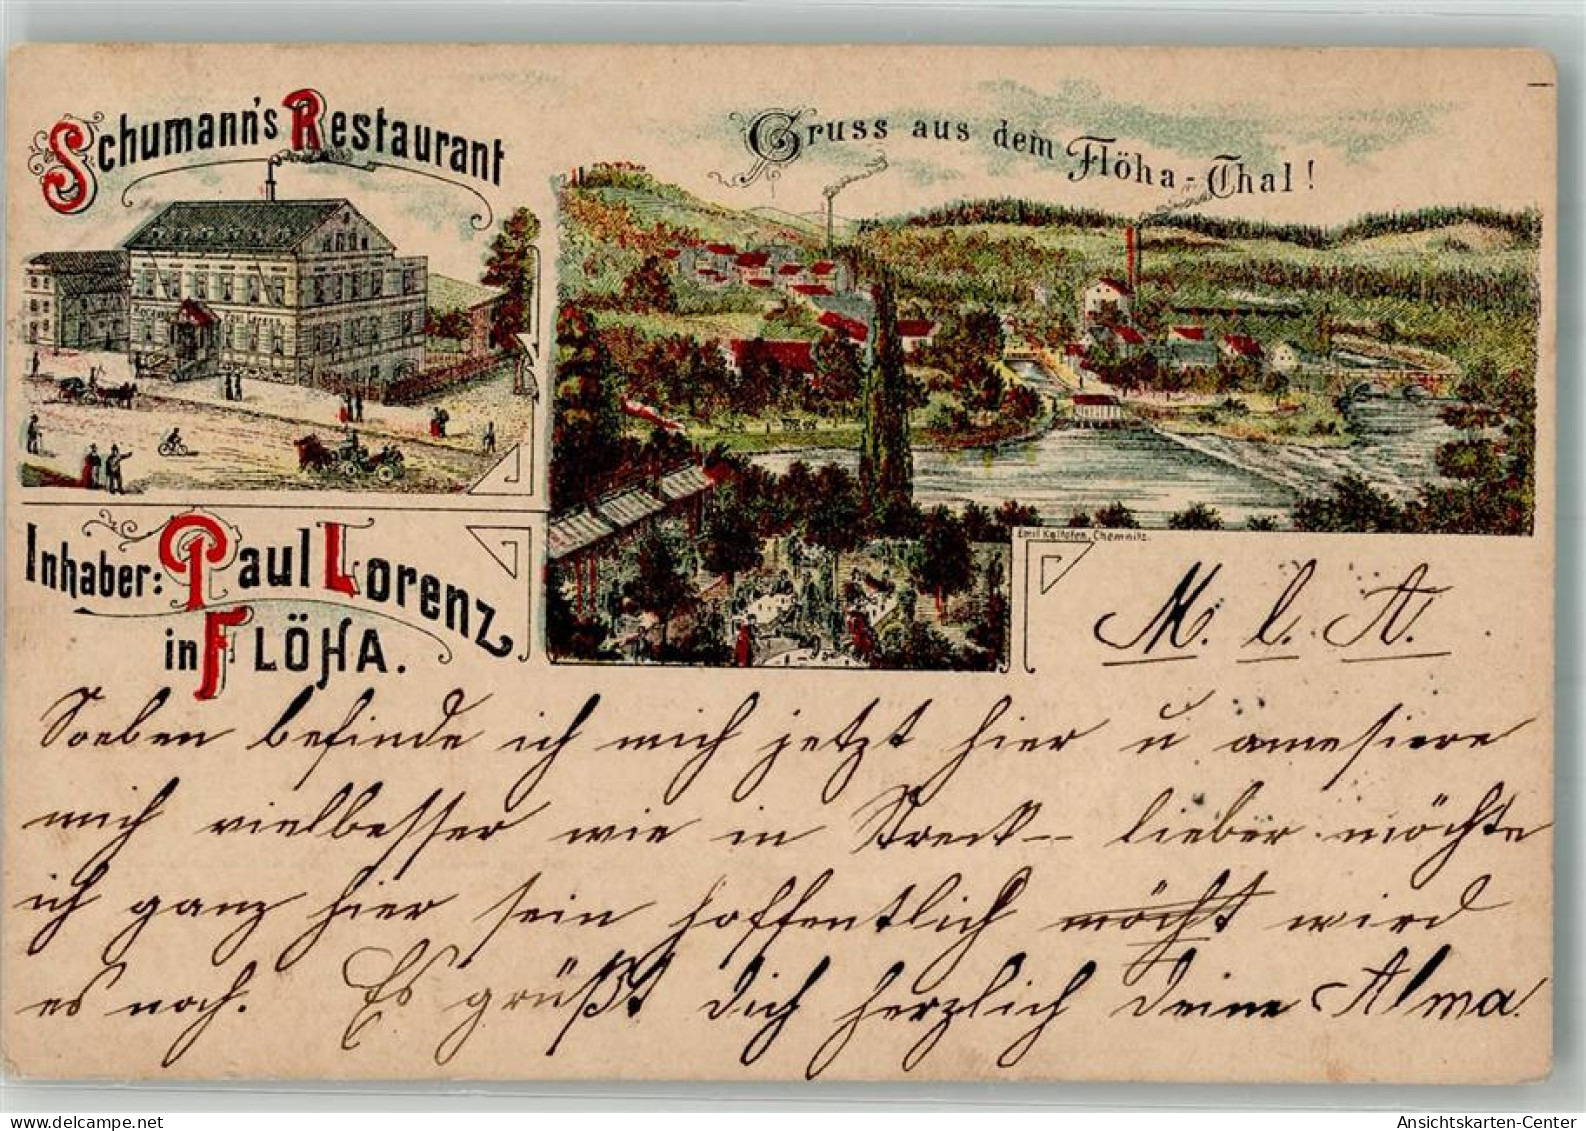 Schumann's Restaurant
Gruss aus dem Flöha-Thal!
Inhaber: Paul Lorenz
in FLÖHA.
Emil Kaltofen, Chemnitz.
M. l. A.
Soeben befinde ich mich jetzt hier u amesiere
mich vielbesser wie in Streck– lieber möchte
ich ganz hier sein hoffentlich möcht wird
es noch. Es grüßt dich herzlich deine Alma.
delcampe.net
Ansichtskarten-Center